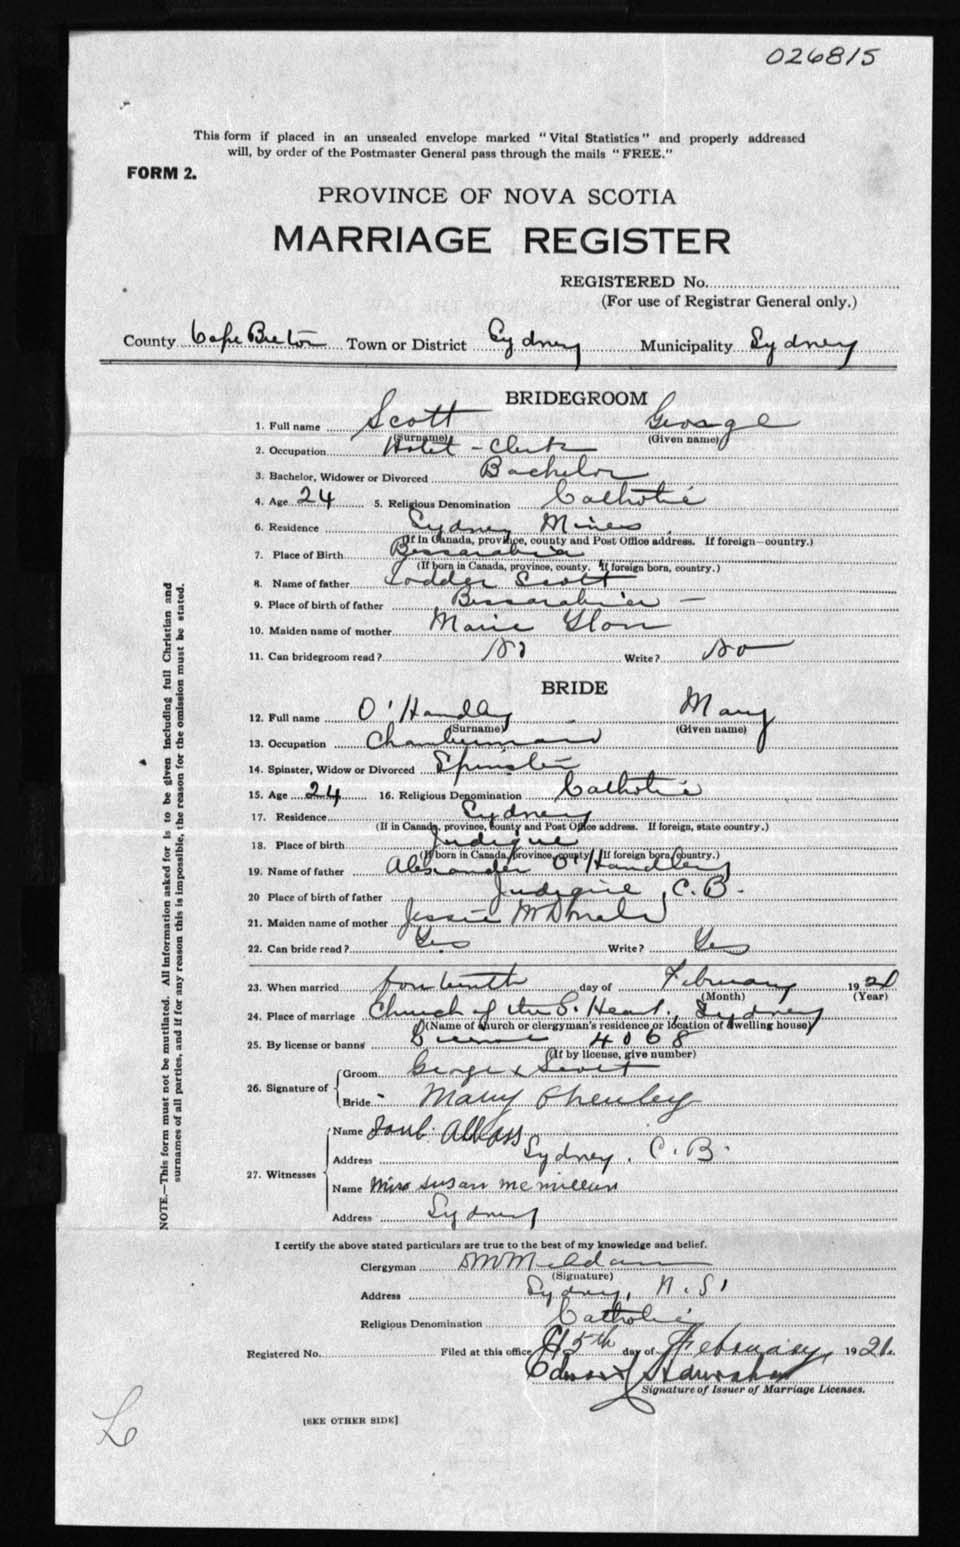 026815
This form if placed in an unsealed envelope marked "Vital Statistics" and properly addressed
will, by order of the Postmaster General pass through the mails "FREE."
FORM 2.
PROVINCE OF NOVA SCOTIA
MARRIAGE REGISTER
REGISTERED No.
(For use of Registrar General only.)
County Cape Breton Town or District Sydney Municipality Sydney
BRIDEGROOM
1. Full name Scott George
(Surname) (Given name)
2. Occupation Hotel - Clerk
3. Bachelor, Widower or Divorced Bachelor
4. Age 24 5. Religious Denomination Catholic
6. Residence Sydney Mines
(If in Canada, province, county and Post Office address. If foreign—country.)
7. Place of Birth Bessarabia
(If born in Canada, province, county. If foreign born, country.)
8. Name of father Scott
9. Place of birth of father Bessarabia -
10. Maiden name of mother Marie
11. Can bridegroom read? No Write? No
BRIDE
12. Full name O'Handley Mary
(Surname) (Given name)
13. Occupation Chambermaid
14. Spinster, Widow or Divorced Spinster
15. Age 24 16. Religious Denomination Catholic
17. Residence Sydney
(If in Canada, province, county and Post Office address. If foreign, state country.)
18. Place of birth Judique
(If born in Canada, province, county. If foreign born, country.)
19. Name of father Alexander O'Handley
20 Place of birth of father Judique C.B.
21. Maiden name of mother Jessie McDonald
22. Can bride read? Yes Write? Yes
23. When married fourteenth day of February 1921
(Month) (Year)
24. Place of marriage Church of the S. Heart, Sydney
(Name of church or clergyman's residence or location of dwelling house)
25. By license or banns License 4068
(If by license, give number)
26. Signature of Groom George x Scott
Bride Mary Ohenley
27. Witnesses
Name
Address Sydney, C.B.
Name Miss Susan McMillan
Address Sydney
I certify the above stated particulars are true to the best of my knowledge and belief.
Clergyman
(Signature)
Address Sydney, N.S.
Religious Denomination Catholic
Registered No. Filed at this office 15th day of February, 1921.
Signature of Issuer of Marriage Licenses.
[SEE OTHER SIDE]
NOTE.—This form must not be mutilated. All information asked for is to be given including full Christian and
surnames of all parties, and if for any reason this is impossible, the reason for the omission must be stated.